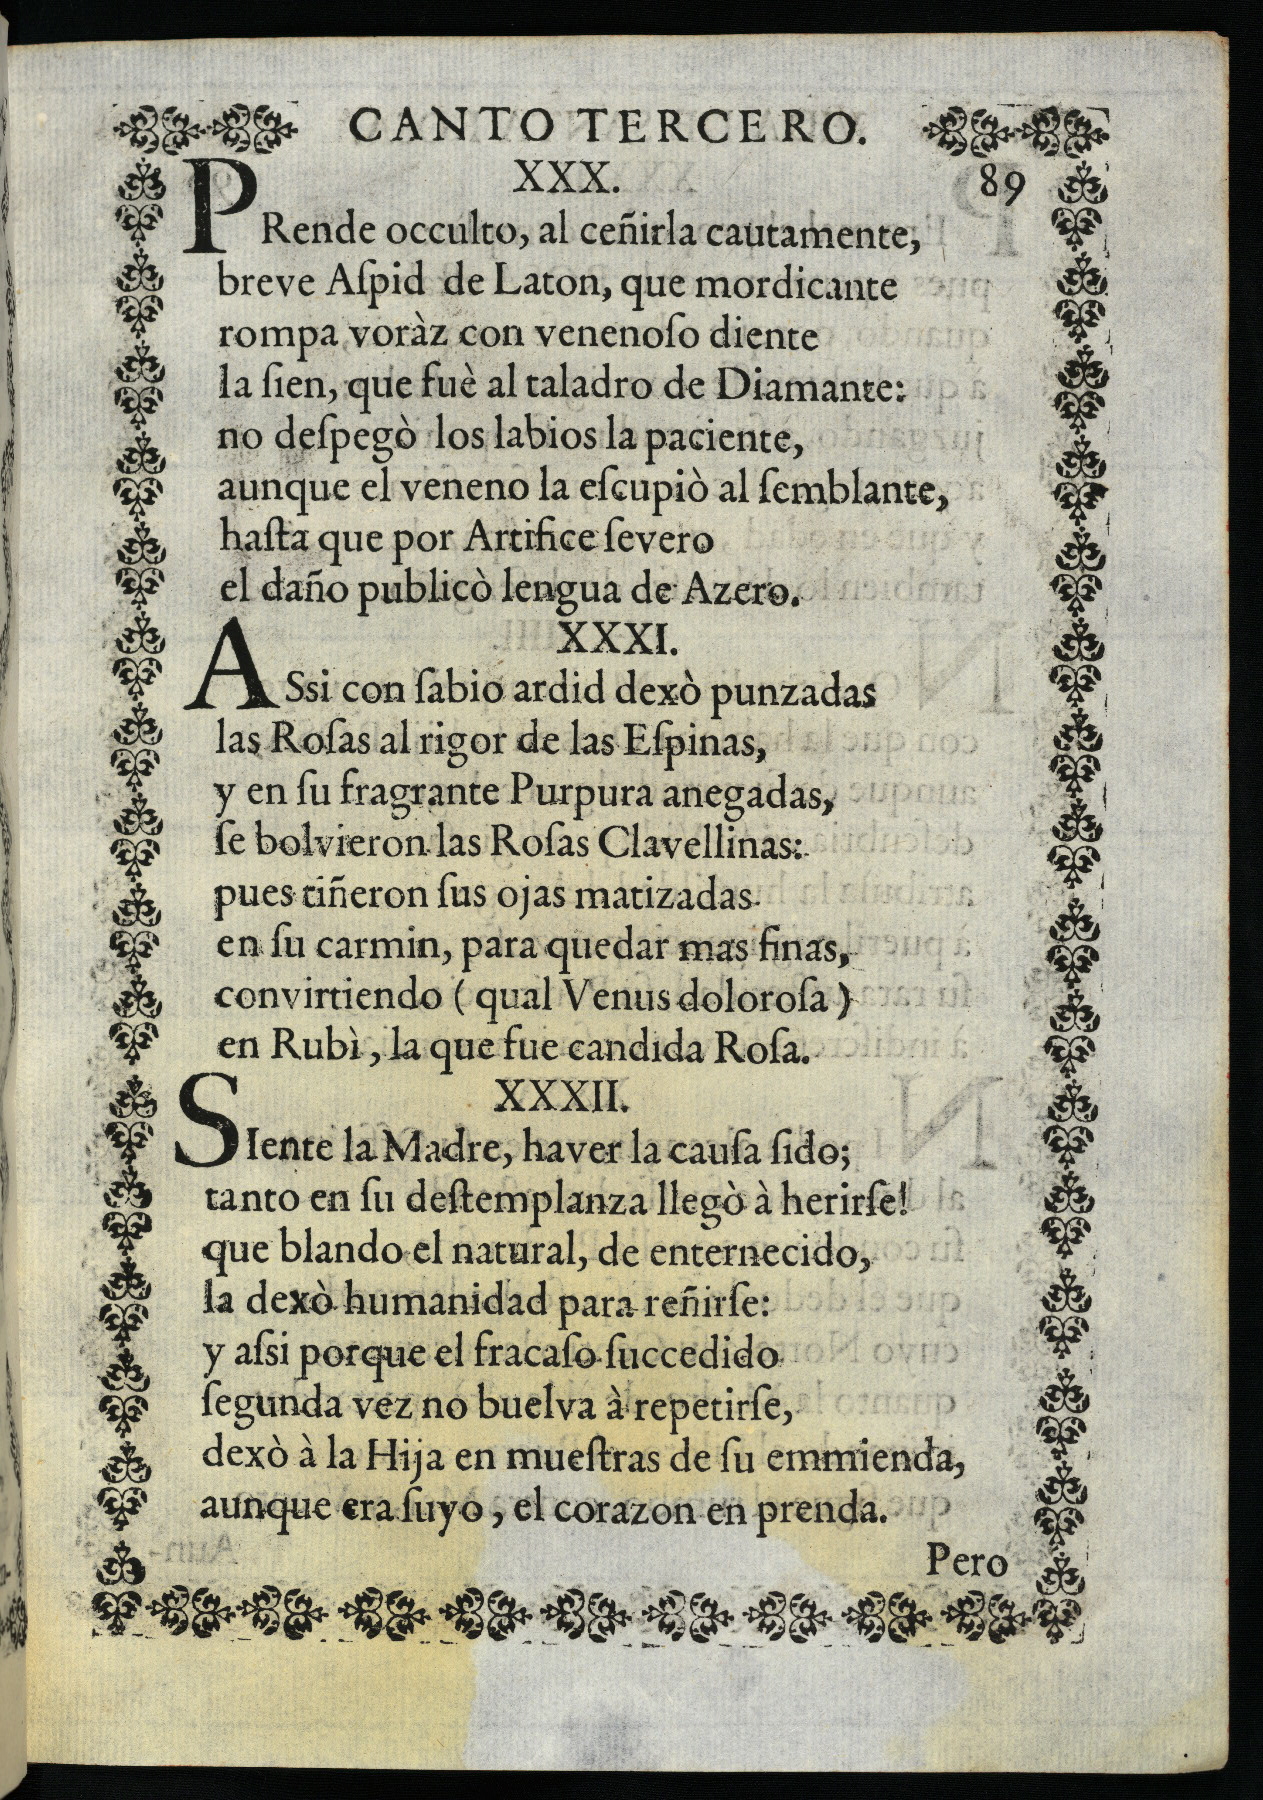 CANTO TERCERO.
XXX. 89
PRende occulto, al ceñirla cautamente,
breve Aſpid de Laton, que mordicante
rompa voràz con venenoſo diente
la ſien, que fuè al taladro de Diamante:
no deſpegò los labios la paciente,
aunque el veneno la eſcupiò al ſemblante,
haſta que por Artifice ſevero
el daño publicò lengua de Azero.
XXXI.
ASsi con ſabio ardid dexò punzadas
las Roſas al rigor de las Eſpinas,
y en ſu fragrante Purpura anegadas,
ſe bolvieron las Roſas Clavellinas:
pues tiñeron ſus ojas matizadas
en ſu carmin, para quedar mas finas,
convirtiendo ( qual Venus doloroſa )
en Rubì, la que fue candida Roſa.
XXXII.
SIente la Madre, haver la cauſa ſido;
tanto en ſu deſtemplanza llegò à herirſe!
que blando el natural, de enternecido,
la dexò humanidad para reñirſe:
y aſsi porque el fracaſo ſuccedido
ſegunda vez no buelva à repetirſe,
dexò à la Hija en mueſtras de ſu emmienda,
aunque era ſuyo, el corazon en prenda.
Pero